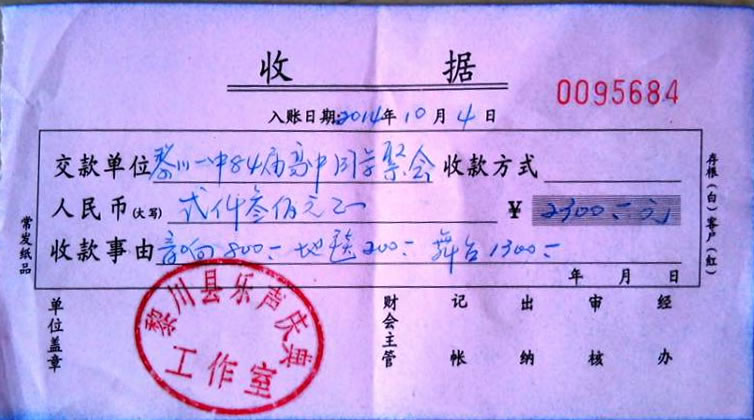 收 据
0095684
入账日期:2014年10月4日
交款单位 黎川一中84届高中同学聚会 收款方式
人民币(大写) 弍仟叁佰元正 ¥ 2300.-元
收款事由 音响800.- 地毯200.- 舞台1300.-
年 月 日
单位盖章
财会主管
记帐
出纳
审核
经办
黎川县乐声庆典
工作室
常发纸品
存根(白)客户(红)